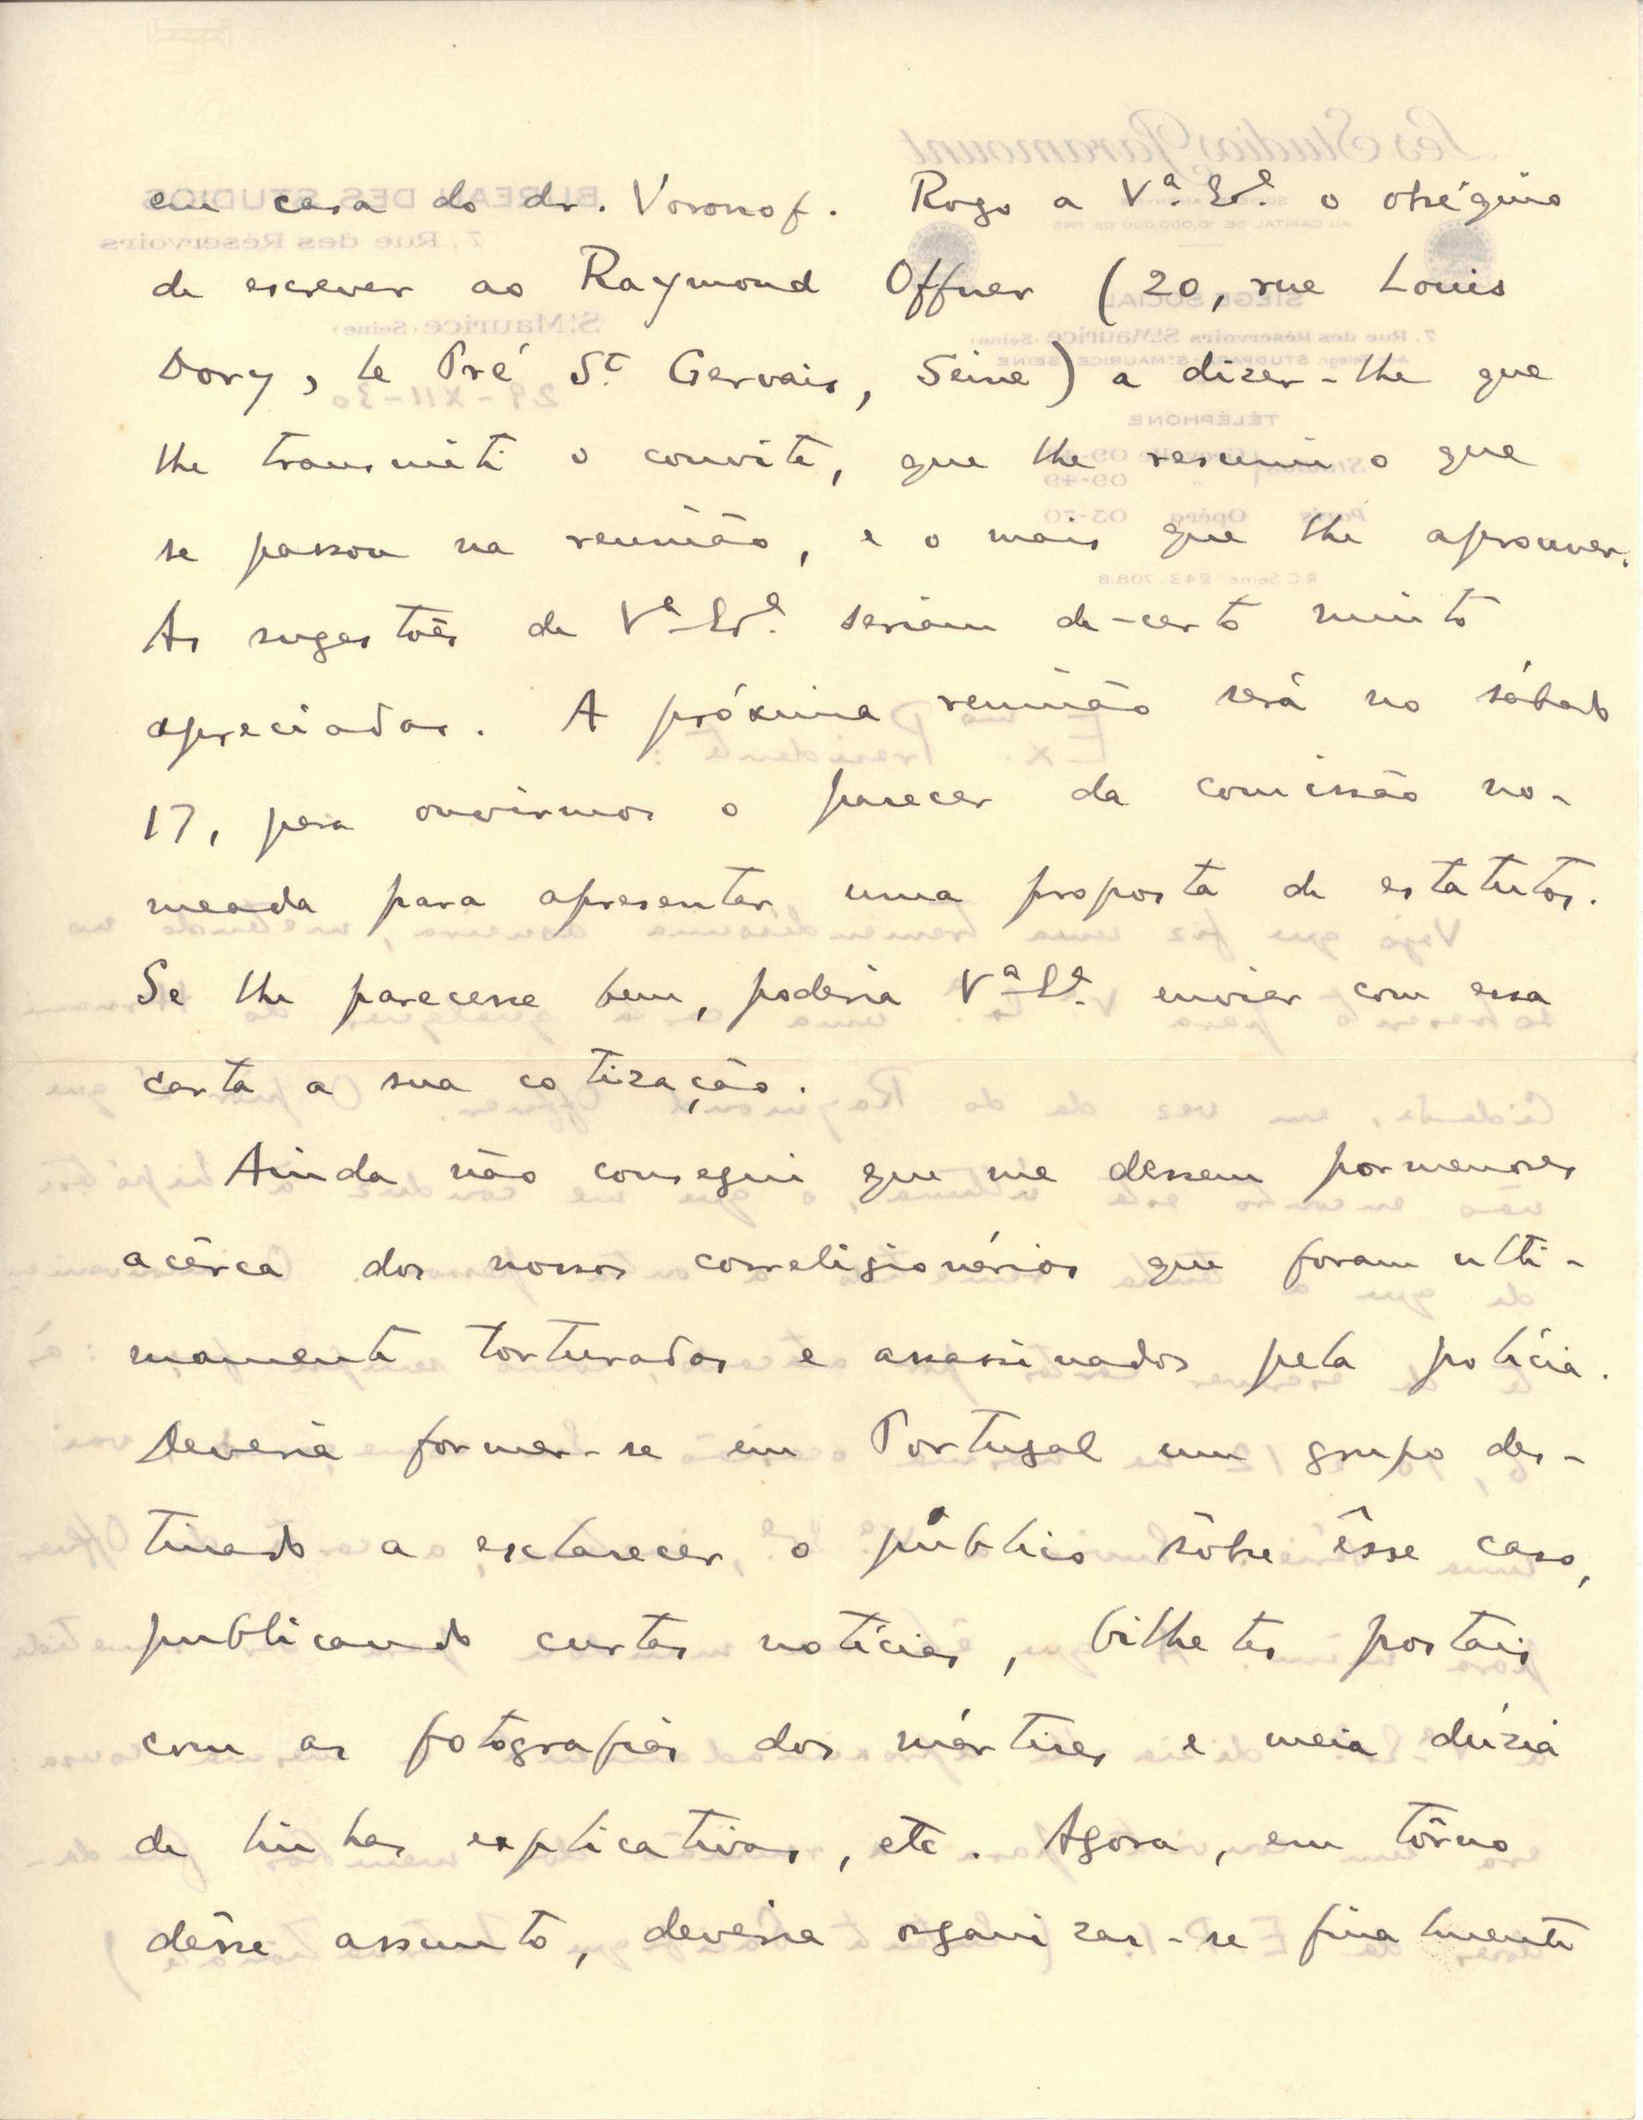 em casa do dr. Voronof. Rogo a Vª. Exª. o obséquio
de escrever ao Raymond Offner (20, rue Louis
Dory, le Pré St Gervais, Seine) a dizer-lhe que
lhe transmiti o convite, que lhe resumi o que
se passou na reunião, e o mais que lhe aprouver.
As sugestões de Vª Exª. seriam de-certo muito
apreciadas. A próxima reunião será no sábado
17, para ouvirmos o parecer da comissão no-
meada para apresentar uma proposta de estatutos.
Se lhe parecesse bem, poderia Vª Exª. enviar com essa
carta a sua cotização.
Ainda não consegui que me dessem pormenores
acêrca dos nossos correligionários que foram ulti-
mamente torturados e assassinados pela polícia.
Deveria formar-se em Portugal um grupo des-
tinado a esclarecer o público sôbre êsse caso,
publicando curtas notícias, bilhetes postais
com as fotografias dos mártires e meia dúzia
de linhas explicativas, etc. Agora, em tôrno
dêsse assunto, deveria organizar-se finalmente
Les Studios Paramount
BUREAU DES STUDIOS
7, Rue des Réservoirs
St Maurice (Seine)
29-XII-30
SIÈGE SOCIAL
7, Rue des Réservoirs St Maurice (Seine)
TÉLÉPHONE
Exmo Presidente: